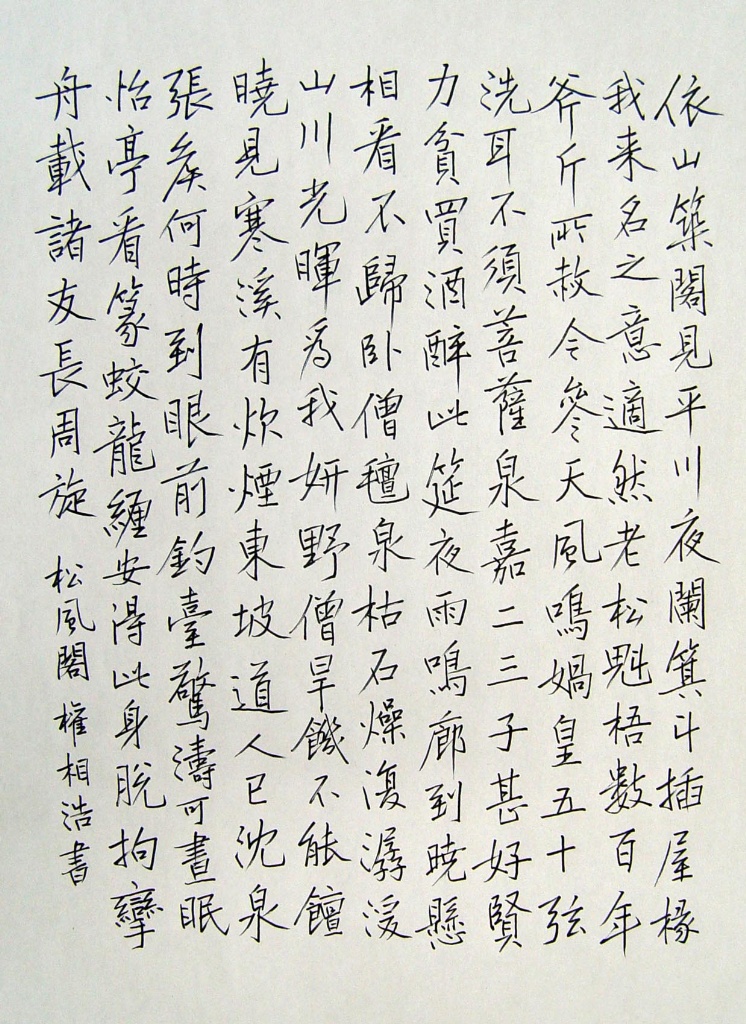 依山築閣見平川夜闌箕斗插屋椽
我来名之意適然老松魁梧數百年
斧斤所赦今參天風鳴媧皇五十弦
洗耳不須菩薩泉嘉二三子甚好賢
力貧買酒醉此筵夜雨鳴廊到曉懸
相看不歸卧僧氊泉枯石燥復潺湲
山川光暉為我妍野僧旱饑不能饘
曉見寒溪有炊煙東坡道人已沈泉
張侯何時到眼前釣臺驚濤可晝眠
怡亭看篆蛟龍纏安得此身脫拘攣
舟載諸友長周旋 松風閣 權相浩書